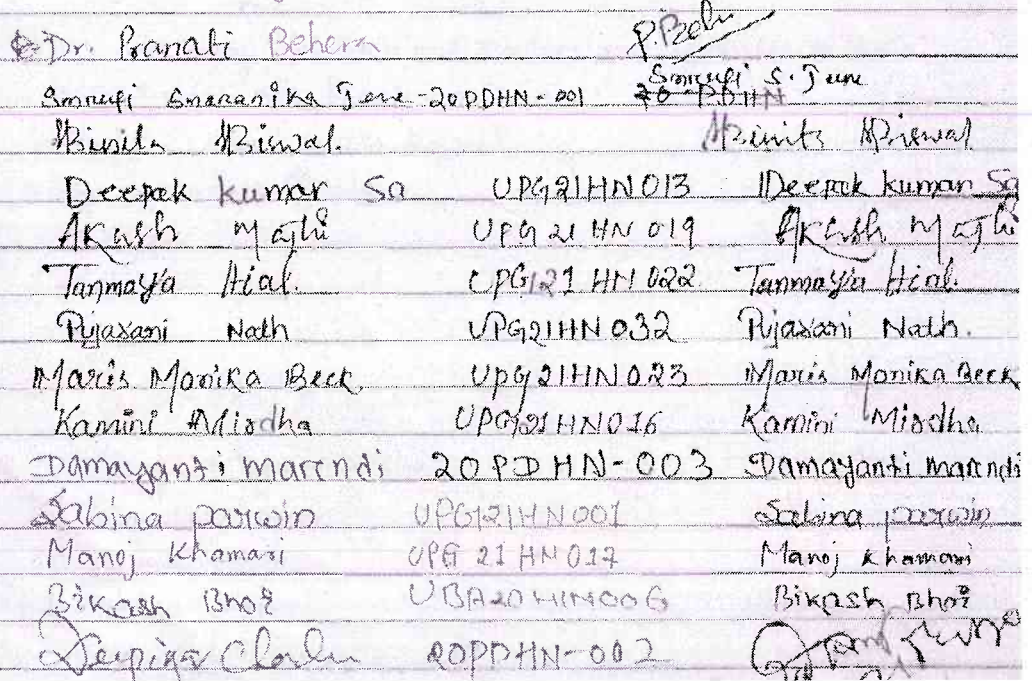 Dr. Pranati Behera P.Behe
Smrufi Smaranika Jene - 20PDHN-001 Smrufi S. Jene
20 PDHN
Binita Biswal. Binita Biswal
Deepak kumar Sa UPG21HN013 Deepak kumar Sa
Akash Majhi UPG21HN019 Akash Majhi
Tanmaya Hial. UPG121HN022 Tanmaya Hial.
Pujarani Nath UPG21HN032 Pujarani Nath.
Maris Monika Beck. UPG21HN023 Maris Monika Beck
Kamini Mirdha UPG21HN016 Kamini Mirdha
Damayanti marendi 20PDHN-003 Damayanti marendi
Sabina parwin UPG121HN001 Sabina parwin
Manoj Khamari UPG21HN017 Manoj Khamari
Bikash Bhoi UBA20HN006 Bikash Bhoi
20PDHN-002